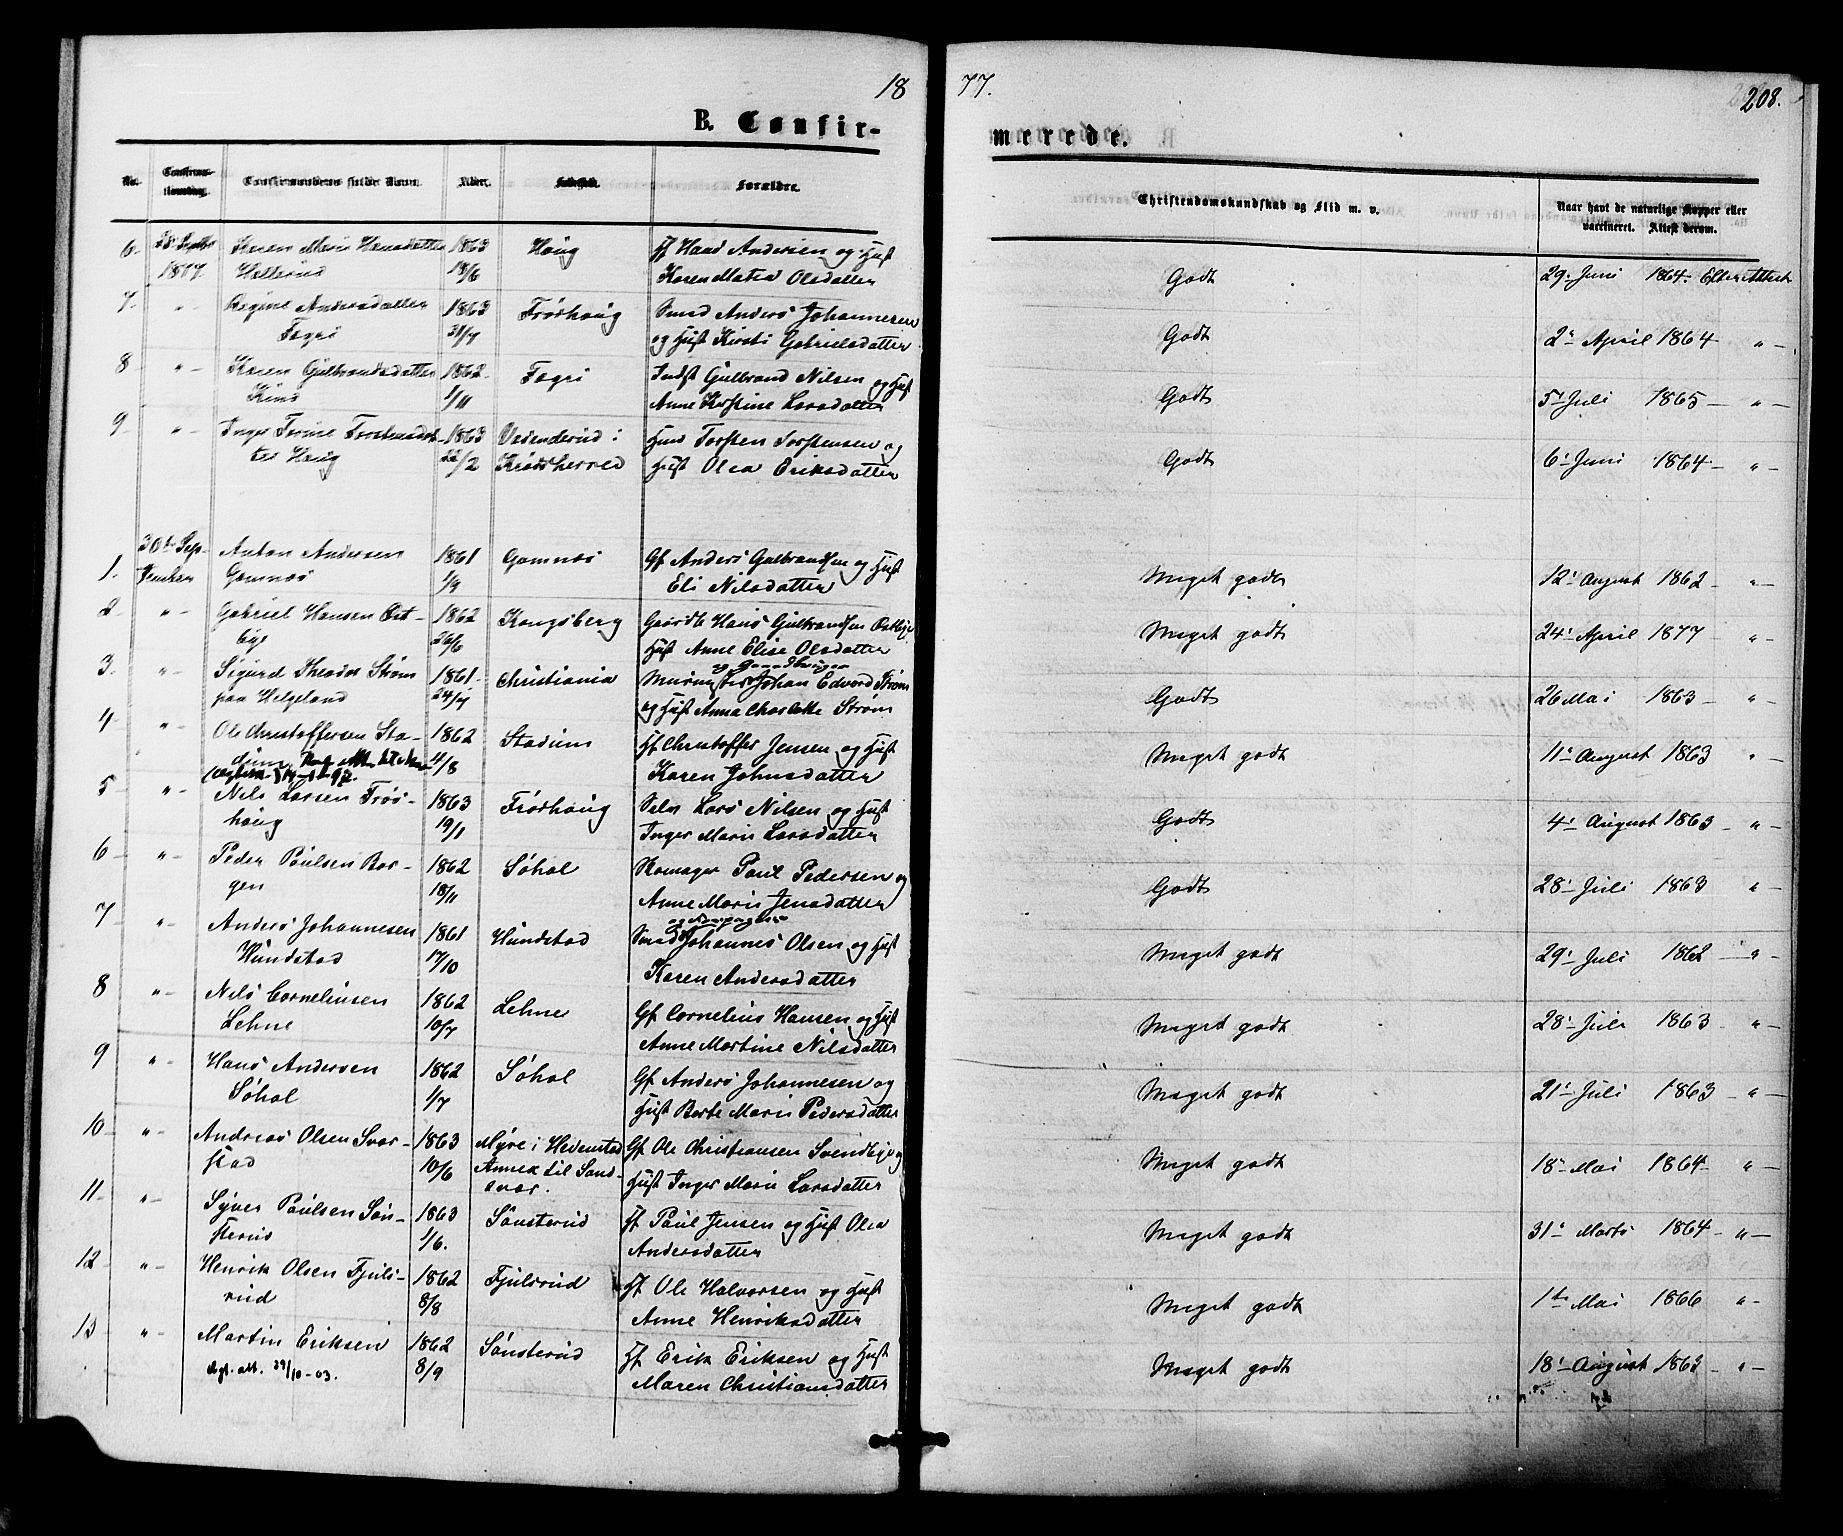 18
77.
208.
B. Confir-
merede.
No.
Confirma-
tionsdag.
Confirmandens fulde Navn.
Alder.
Fødested.
Forældre.
Christendomskundskab og Flid m. v.
Naar havt de naturlige Kopper eller
vaccineret. Attest derom.
6. 1877. Karen Marie Hansdatter 1863 Haug Hans Andersen og Hust
18/6 Karen Mathea Olsdatter
Godt 29. Juni 1864. Efter Attest
7. " Regine Andersdatter 1863 Frøshaug Smed Anders Johannesen
Fegri 31/7 og Hust Kirsti Gabrielsdatter
Godt 2 April 1864 "
8 " Karen Gulbrandsdatter 1862 Fegri Indst Gulbrand Nilsen og Hust
1/11 Anne Kirstine Larsdatter
Godt 5 Juli 1865 "
9 " Inger Torine Torstensdat- 1863 i Hmd Torsten Torstensen og
ter Haug 22/2 Krødsherred Hust Olea Eriksdatter
Godt 6 Juni 1864 "
1. 30te Sep- Anton Andersen 1861 Gomnæs Gf Anders Gulbrandsen og Hust
tember Gomnæs 1/9 Eli Nilsdatter
Meget godt 12 August 1862 "
2 " Gabriel Hansen Øst- 1862 Kongsberg Gaardbr Hans Gulbrandsen Østbye
bye 26/6 Hust Anne Elise Olsdatter
Meget godt 24 April 1877 "
3. " Sigurd Theodor Strøm 1861 Christiania Murmester Johan Edvard Strøm
paa Helgeland 24/4 og Hust Anna Charlotte Strøm
Godt 26 Mai 1863 "
4 " Ole Christoffersen Sta- 1862 Stadum Hf Christoffer Jensen og Hust
dum 11/8 Karen Johnsdatter
Meget godt 11 August 1863 "
5 " Nils Larsen Frøs- 1863 Frøshaug Selv Lars Nilsen og Hust
haug 19/1 Inger Marie Larsdatter
Godt 4 August 1863 "
6 " Peder Paulsen Bor- 1862 Søhol Skomager Paul Pedersen og
gen 18/11 Anne Marie Jensdatter
Godt 28 Juli 1863 "
7 " Anders Johannesen 1861 Hundstad Smed Johannes Olsen og Hust
Hundstad 17/10 Karen Andersdatter
Meget godt 29 Juli 1862 "
8 " Nils Corneliusen 1862 Lehne Gf Cornelius Hansen og Hust
Lehne 10/7 Anne Martine Nilsdatter
Meget godt 28 Juli 1863 "
9 " Hans Andersen 1862 Søhol Gf Anders Johannesen og
Søhol 1/7 Hust Berte Marie Pedersdatter
Meget godt 21 Juli 1863 "
10 " Andreas Olsen Svar- 1863 Myre i Hedenstad Gf Ole Christiansen Svendby og
stad 10/6 Annex til Sands- Hust Inger Marie Larsdatter
vær.
Meget godt 18 Mai 1864 "
11 " Syver Paulsen Søn- 1863 Sønsterud Hf Paul Jensen og Hust Olea
sterud 1/6. Andersdatter
Meget godt 31 Marts 1864 "
12 " Henrik Olsen Fjuls- 1862 Fjulsrud Hf Ole Halvorsen og Hust
rud 8/8 Anne Henriksdatter
Meget godt 1te Mai 1866 "
13 " Martin Eriksen 1862 Sønsterud Hf Erik Eriksen og Hust
att. 29/10-03. 8/9 Maren Christiansdatter
Meget godt 18 August 1863 "